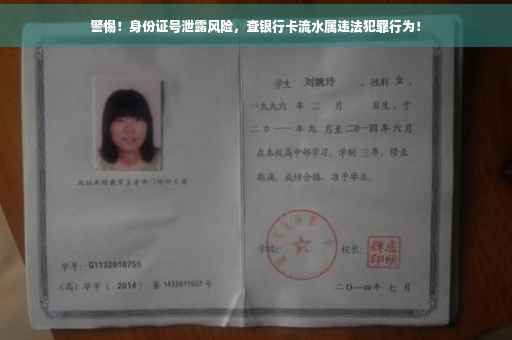 警惕！身份证号泄露风险，查银行卡流水属违法犯罪行为！
学生 刘婉玲 ，性别 女 ，
一九九六 年 二 月 日生，于
二〇一一年九 月至二〇一四年六月
在本校高中部学习，学制 三年，修业
期满，成绩合格，准予毕业。
学校： 校长：
学号： G1132010755
（高）毕字（ 2014 ）第 1432011007 号
二〇一四年 七 月